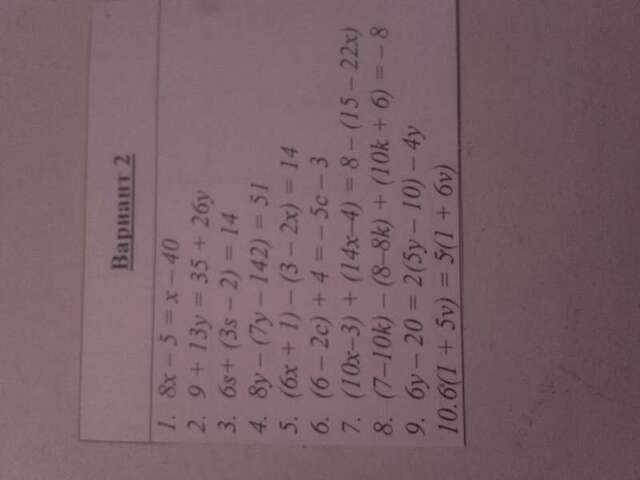 Вариант 2
1. 8x – 5 = x – 40
2. 9 + 13y = 35 + 26y
3. 6s+ (3s – 2) = 14
4. 8y – (7y – 142) = 51
5. (6x + 1) – (3 – 2x) = 14
6. (6 – 2c) + 4 = – 5c – 3
7. (10x–3) + (14x–4) = 8 – (15 – 22x)
8. (7–10k) – (8–8k) + (10k + 6) = – 8
9. 6y – 20 = 2(5y – 10) – 4y
10. 6(1 + 5v) = 5(1 + 6v)